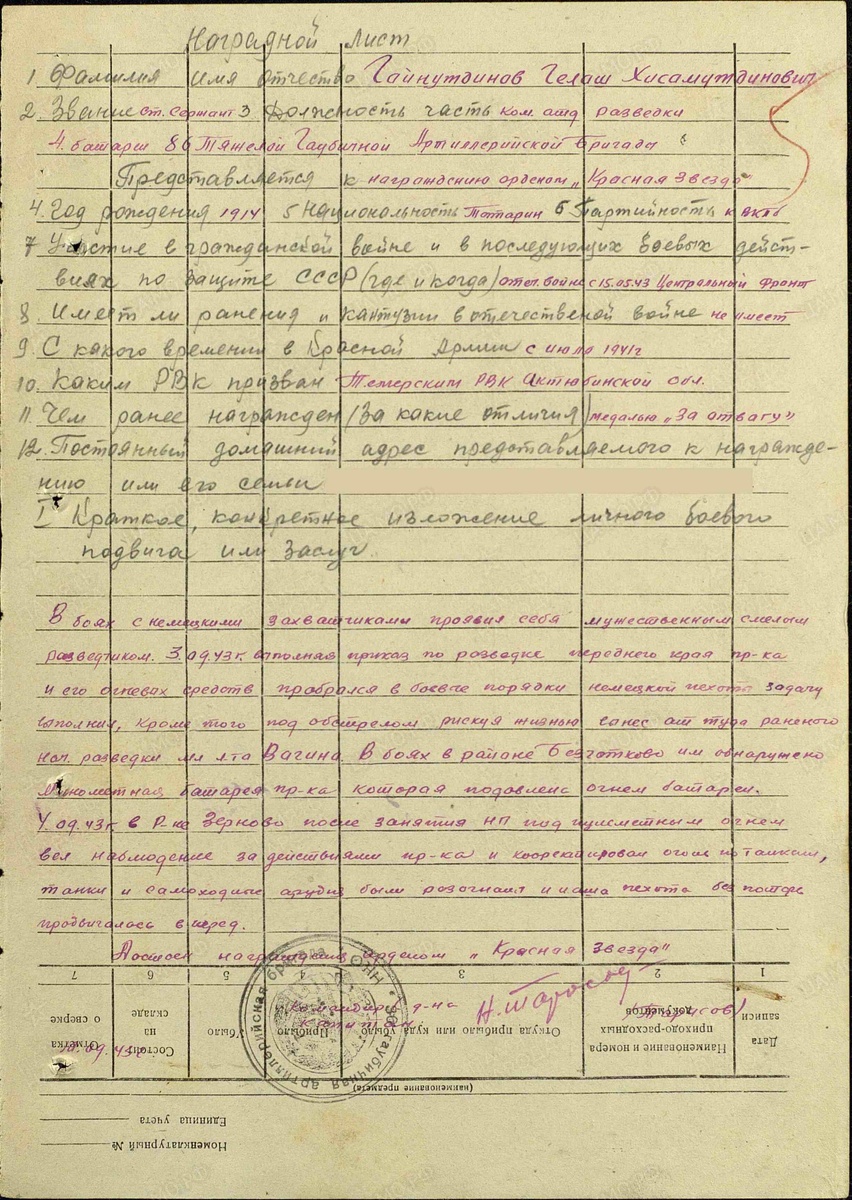 Наградной лист
1. Фамилия имя отчество Гайнутдинов Гелаш Хисамутдинович
2. Звание Ст. Сержант 3 Должность часть ком. отд разведки
4. батареи 86 Тяжелой Гаубичной Артиллерийской бригады
Представляется к награждению орденом „Красная Звезда"
4. Год рождения 1914 5 Национальность Тоттарин 6 Партийность к ВКПб
7 Участие в гражданской войне и в последующих боевых дейст-
виях по защите СССР (где и когда) отеч. войне с 15.05.43 Центральный Фронт
8. Имеет ли ранения и кантузии в отечественой войне не имеет
9 С какого времени в Красной Армии с июля 1941г
10. Каким РВК призван Темерским РВК Актюбинской обл.
11. Чем ранее награжден (За какие отличия) медалью „За отвагу"
12. Постоянный домашний адрес представляемого к награжде-
нию или его семьи
I Краткое, конкретное изложение личного боевого
подвига или заслуг.
В боях с немецкими захватчиками проявил себя мужественным смелым
разведчиком. 3.09.43г. выполняя приказ по разведке переднего края пр-ка
и его огневых средств пробрался в боевые порядки немецкой пехоты задачу
выполнил, кроме того под обстрелом рискуя жизнью вынес от туда раненого
нач. разведки мл л-та Вагина. В боях в районе им обнаружено
Минометная батарея пр-ка которая подавлена огнем батареи.
4.09.43г в Р-не Зерново после занятия НП под пулеметным огнем
вел наблюдение за действиями пр-ка и кооректировал огонь по танкам,
танки и самоходные арудия были разогнаны и наша пехота без потерь
продвигалась вперед.
Достоен награждения орденом „Красная Звезда"
7 6 5 4 3 2 1
Командир д-на
Капитан
Н. Тарасов (Тарасов)
10.09.43г
Отметка о сверке
Состоит на складе
Убыло
Прибыло
Откуда прибыло или куда убыло
Наименование и номера приходо-расходных документов
Дата записи
(наименование предмета)
Единица учета
Номенклатурный №